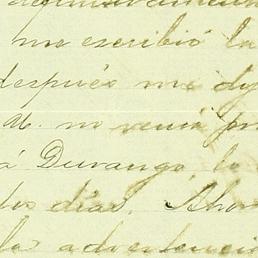 me escribió la
después me dij
M. no venía por
á Durango, lo
los días. Ahor
la advertencia